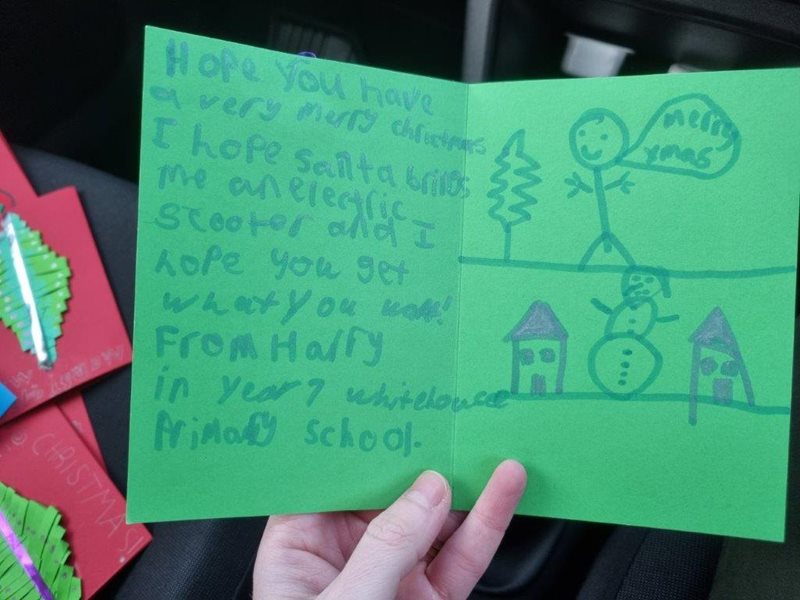 Hope you have
a very merry christmas
I hope santa brings
me an electric
scooter and I
hope you get
what you want!
From Harry
in year 7 whitehouse
Primary school.
merry
xmas
CHRISTMAS!